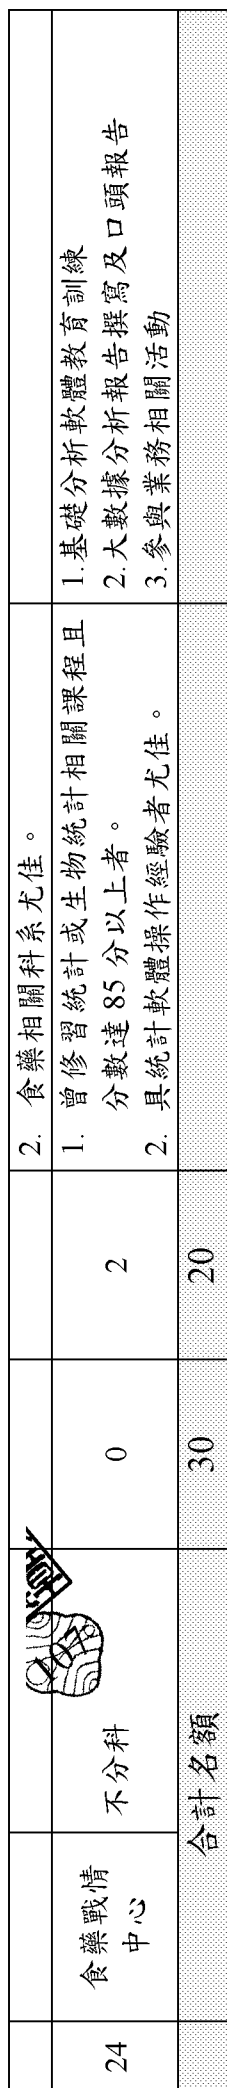 2. 食藥相關科系尤佳。
24
食藥戰情
中心
不分科
0
2
1. 曾修習統計或生物統計相關課程且
分數達 85 分以上者。
2. 具統計軟體操作經驗者尤佳。
1.基礎分析軟體教育訓練
2.大數據分析報告撰寫及口頭報告
3.參與業務相關活動
合計名額
30
20